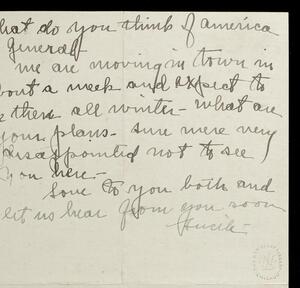 hat do you think of america
General
we are moving in town in
out a week and expect to
be there all winter - what are
your plans - sure were very
disappointed not to see
you here -
Love to you both and
let us hear from you soon
Lucile -